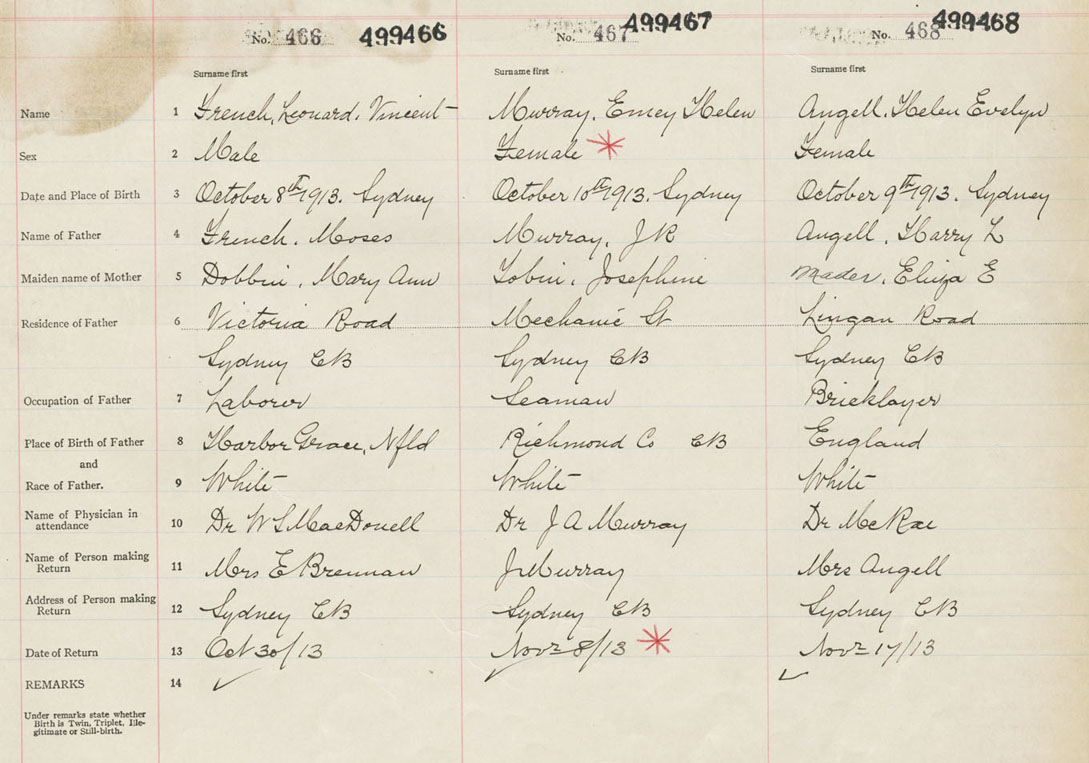 No. 466 499466 No. 467 499467 No. 468 499468
Surname first Surname first Surname first
Name 1 French, Leonard. Vincent Murray. Emey Helen Angell. Helen Evelyn
Sex 2 Male Female Female
Date and Place of Birth 3 October 8th 1913. Sydney October 10th 1913. Sydney October 9th 1913. Sydney
Name of Father 4 French. Moses Murray. J R Angell. Harry L
Maiden name of Mother 5 Dobbin, Mary Ann Tobin, Josephine Mader, Eliza E
Residence of Father 6 Victoria Road Mechanic St Lingan Road
Sydney CB Sydney CB Sydney CB
Occupation of Father 7 Laborer Seaman Bricklayer
Place of Birth of Father 8 Harbor Grace, Nfld Richmond Co CB England
and
Race of Father. 9 White White White
Name of Physician in
attendance 10 Dr W S MacDonell Dr J A Murray Dr McRae
Name of Person making
Return 11 Mrs E Brennan J Murray Mrs Angell
Address of Person making
Return 12 Sydney CB Sydney CB Sydney CB
Date of Return 13 Oct 30/13 Novr 8/13 Novr 17/13
REMARKS 14
Under remarks state whether
Birth is Twin, Triplet, Ille-
gitimate or Still-birth.